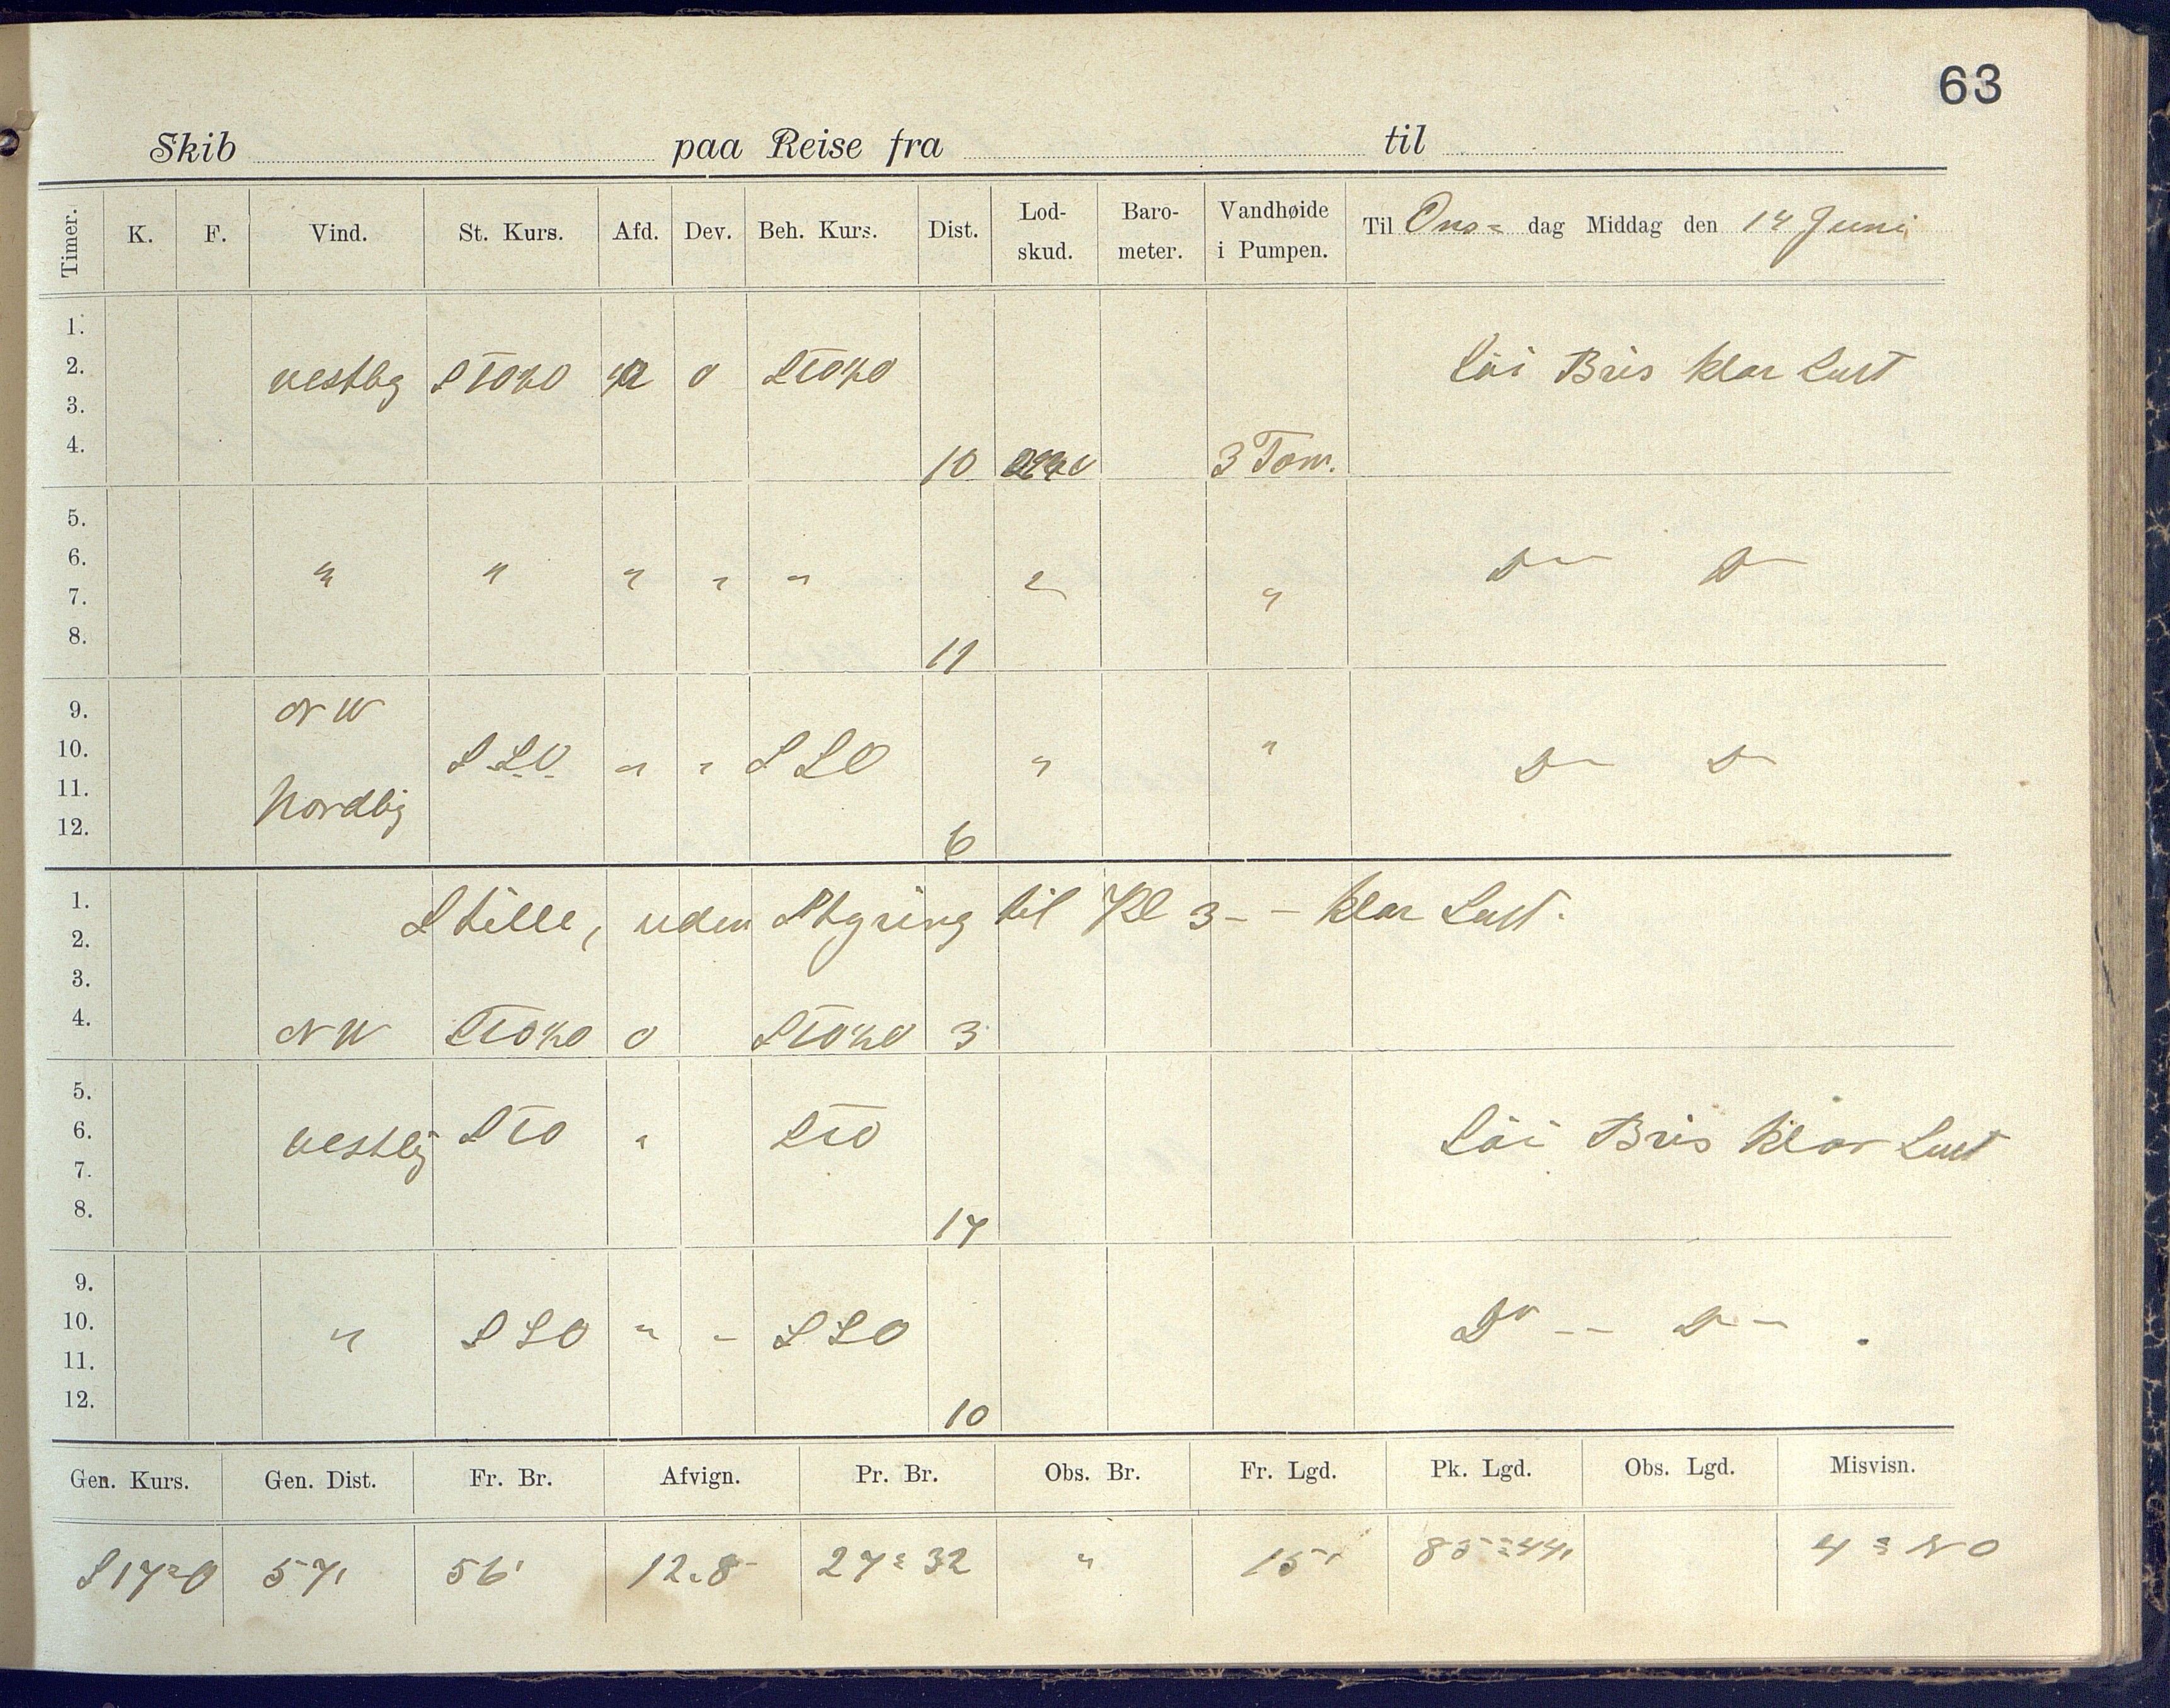 63
Skib paa Reise fra til
Timer. K. F. Vind. St. Kurs. Afd. Dev. Beh. Kurs. Dist. Lod-skud. Baro-meter. Vandhøide i Pumpen. Til Ons= dag Middag den 14 Juni
1.
2. vestlig StO½O 0 StO½O Löi Bris klar Luft
3.
4. 10 3 Tom.
5.
6. " " " " " " " D— D—
7.
8. 11
9. NW
10. SSO " " SSO " " D— D—
11. Nordlig
12. 6
1. Stille, uden Styring til Kl 3 - - klar Luft.
2.
3.
4. NW StO½O 0 StO½O 3
5.
6. vestlig StO " StO Löi Bris klar Luft
7.
8. 17
9.
10. " SSO " - SSO Do -- D--.
11.
12. 10
Gen. Kurs. Gen. Dist. Fr. Br. Afvign. Pr. Br. Obs. Br. Fr. Lgd. Pk. Lgd. Obs. Lgd. Misvisn.
S17°O 57' 56' 12.8 27°32 " 15' 85°44' 4° NO